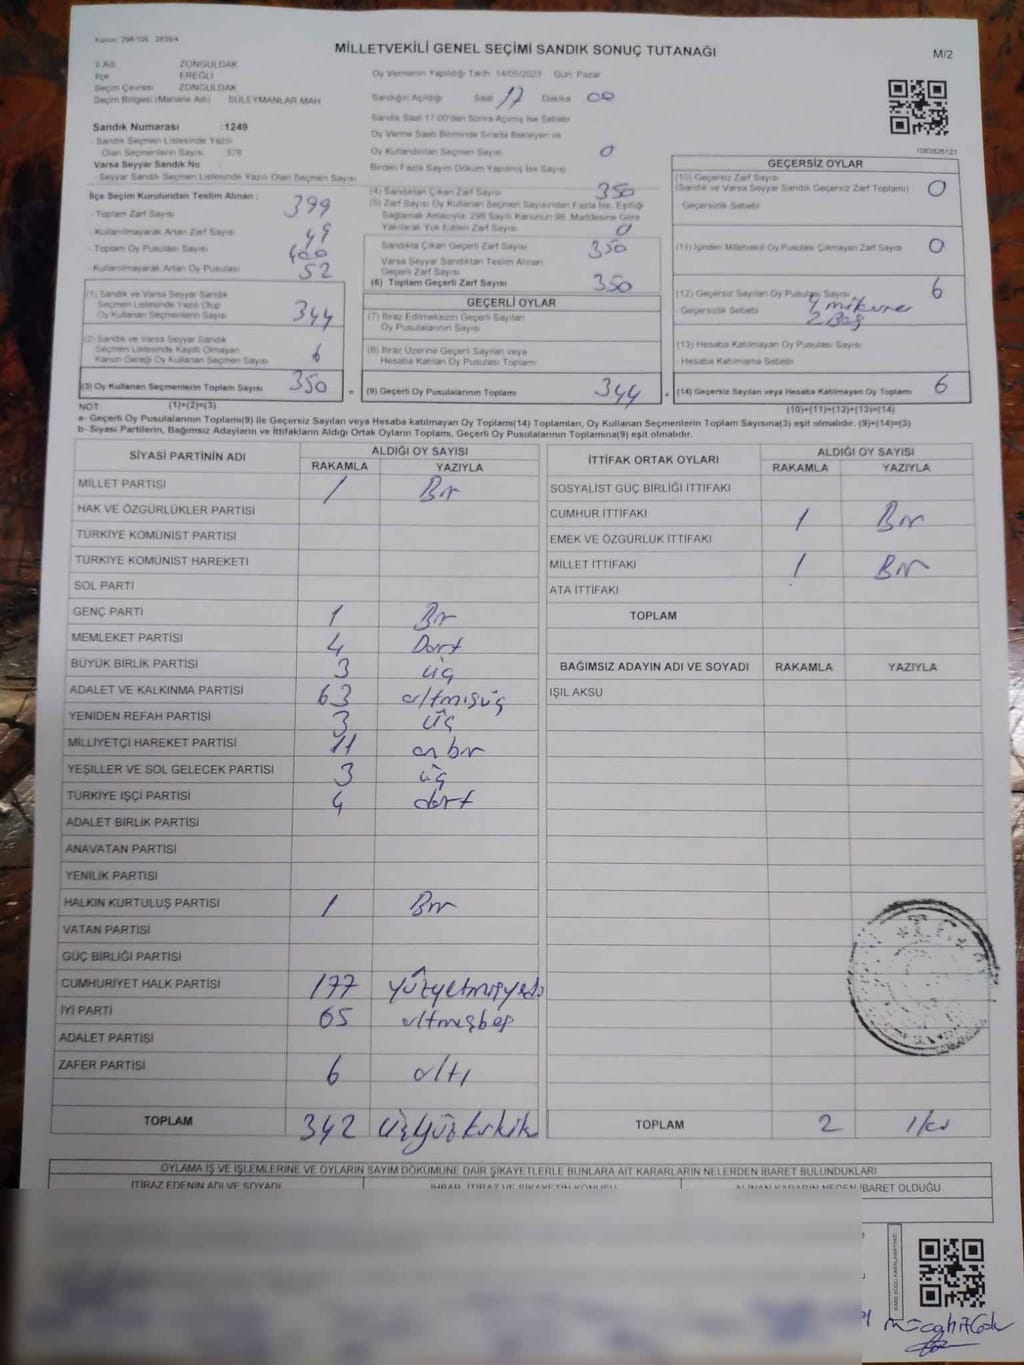 Kanun: 298/105 2839/4
MİLLETVEKİLİ GENEL SEÇİMİ SANDIK SONUÇ TUTANAĞI
M/2
İl Adı ZONGULDAK
İlçe EREĞLİ
Seçim Çevresi ZONGULDAK
Seçim Bölgesi (Mahalle Adı) SÜLEYMANLAR MAH
Sandık Numarası : 1249
Sandık Seçmen Listesinde Yazılı
Olan Seçmenlerin Sayısı 376
Varsa Seyyar Sandık No
Seyyar Sandık Seçmen Listesinde Yazılı Olan Seçmen Sayısı
Oy Vermenin Yapıldığı Tarih 14/05/2023 Gün Pazar
Sandığın Açıldığı Saat 17 Dakika 00
Sandık Saat 17:00'den Sonra Açılmış İse Sebebi
Oy Verme Saati Bitiminde Sırada Bekleyen ve
Oy Kullandırılan Seçmen Sayısı 0
Birden Fazla Sayım Döküm Yapılmış İse Sayısı
1083826121
İlçe Seçim Kurulundan Teslim Alınan :
- Toplam Zarf Sayısı 399
- Kullanılmayarak Artan Zarf Sayısı 49
- Toplam Oy Pusulası Sayısı 400
- Kullanılmayarak Artan Oy Pusulası 52
(1) Sandık ve Varsa Seyyar Sandık
Seçmen Listesinde Yazılı Olup
Oy Kullanan Seçmenlerin Sayısı 344
(2) Sandık ve Varsa Seyyar Sandık
Seçmen Listesinde Kayıtlı Olmayan
Kanun Gereği Oy Kullanan Seçmen Sayısı 6
(3) Oy Kullanan Seçmenlerin Toplam Sayısı 350
(1)+(2)=(3)
(4) Sandıktan Çıkan Zarf Sayısı 350
(5) Zarf Sayısı Oy Kullanan Seçmen Sayısından Fazla İse, Eşitliği
Sağlamak Amacıyla, 298 Sayılı Kanunun 98. Maddesine Göre
Yakılarak Yok Edilen Zarf Sayısı 0
Sandıkta Çıkan Geçerli Zarf Sayısı 350
Varsa Seyyar Sandıktan Teslim Alınan
Geçerli Zarf Sayısı
(6) Toplam Geçerli Zarf Sayısı 350
GEÇERLİ OYLAR
(7) İtiraz Edilmeksizin Geçerli Sayılan
Oy Pusulalarının Sayısı
(8) İtiraz Üzerine Geçerli Sayılan veya
Hesaba Katılan Oy Pusulası Toplamı
(9) Geçerli Oy Pusulalarının Toplamı 344
GEÇERSİZ OYLAR
(10) Geçersiz Zarf Sayısı
(Sandık ve Varsa Seyyar Sandık Geçersiz Zarf Toplamı) 0
Geçersizlik Sebebi
(11) İçinden Milletvekili Oy Pusulası Çıkmayan Zarf Sayısı 0
(12) Geçersiz Sayılan Oy Pusulası Sayısı 6
Geçersizlik Sebebi
2 Boş
(13) Hesaba Katılmayan Oy Pusulası Sayısı
Hesaba Katılmama Sebebi
(14) Geçersiz Sayılan veya Hesaba Katılmayan Oy Toplamı 6
(10)+(11)+(12)+(13)=(14)
NOT:
a- Geçerli Oy Pusulalarının Toplamı(9) ile Geçersiz Sayılan veya Hesaba katılmayan Oy Toplamı(14) Toplamları, Oy Kullanan Seçmenlerin Toplam Sayısına(3) eşit olmalıdır. (9)+(14)=(3)
b- Siyasi Partilerin, Bağımsız Adayların ve İttifakların Aldığı Ortak Oyların Toplamı, Geçerli Oy Pusulalarının Toplamına(9) eşit olmalıdır.
SİYASİ PARTİNİN ADI ALDIĞI OY SAYISI
RAKAMLA YAZIYLA
MİLLET PARTİSİ 1 Bir
HAK VE ÖZGÜRLÜKLER PARTİSİ
TÜRKİYE KOMÜNİST PARTİSİ
TÜRKİYE KOMÜNİST HAREKETİ
SOL PARTİ
GENÇ PARTİ 1 Bir
MEMLEKET PARTİSİ 4 Dört
BÜYÜK BİRLİK PARTİSİ 3 üç
ADALET VE KALKINMA PARTİSİ 63 altmışüç
YENİDEN REFAH PARTİSİ 3 üç
MİLLİYETÇİ HAREKET PARTİSİ 11 onbir
YEŞİLLER VE SOL GELECEK PARTİSİ 3 üç
TÜRKİYE İŞÇİ PARTİSİ 4 dört
ADALET BİRLİK PARTİSİ
ANAVATAN PARTİSİ
YENİLİK PARTİSİ
HALKIN KURTULUŞ PARTİSİ 1 Bir
VATAN PARTİSİ
GÜÇ BİRLİĞİ PARTİSİ
CUMHURİYET HALK PARTİSİ 177 yüzyetmişyedi
İYİ PARTİ 65 altmışbeş
ADALET PARTİSİ
ZAFER PARTİSİ 6 altı
TOPLAM 342 üçyüzkırkiki
İTTİFAK ORTAK OYLARI ALDIĞI OY SAYISI
RAKAMLA YAZIYLA
SOSYALİST GÜÇ BİRLİĞİ İTTİFAKI
CUMHUR İTTİFAKI 1 Bir
EMEK VE ÖZGÜRLÜK İTTİFAKI
MİLLET İTTİFAKI 1 Bir
ATA İTTİFAKI
TOPLAM
BAĞIMSIZ ADAYIN ADI VE SOYADI RAKAMLA YAZIYLA
IŞIL AKSU
TOPLAM 2 iki
OYLAMA İŞ VE İŞLEMLERİNE VE OYLARIN SAYIM DÖKÜMÜNE DAİR ŞİKAYETLERLE BUNLARA AİT KARARLARIN NELERDEN İBARET BULUNDUKLARI
İTİRAZ EDENİN ADI VE SOYADI İHBAR, İTİRAZ VE ŞİKAYETİN KONUSU ALINAN KARARIN NEDEN İBARET OLDUĞU